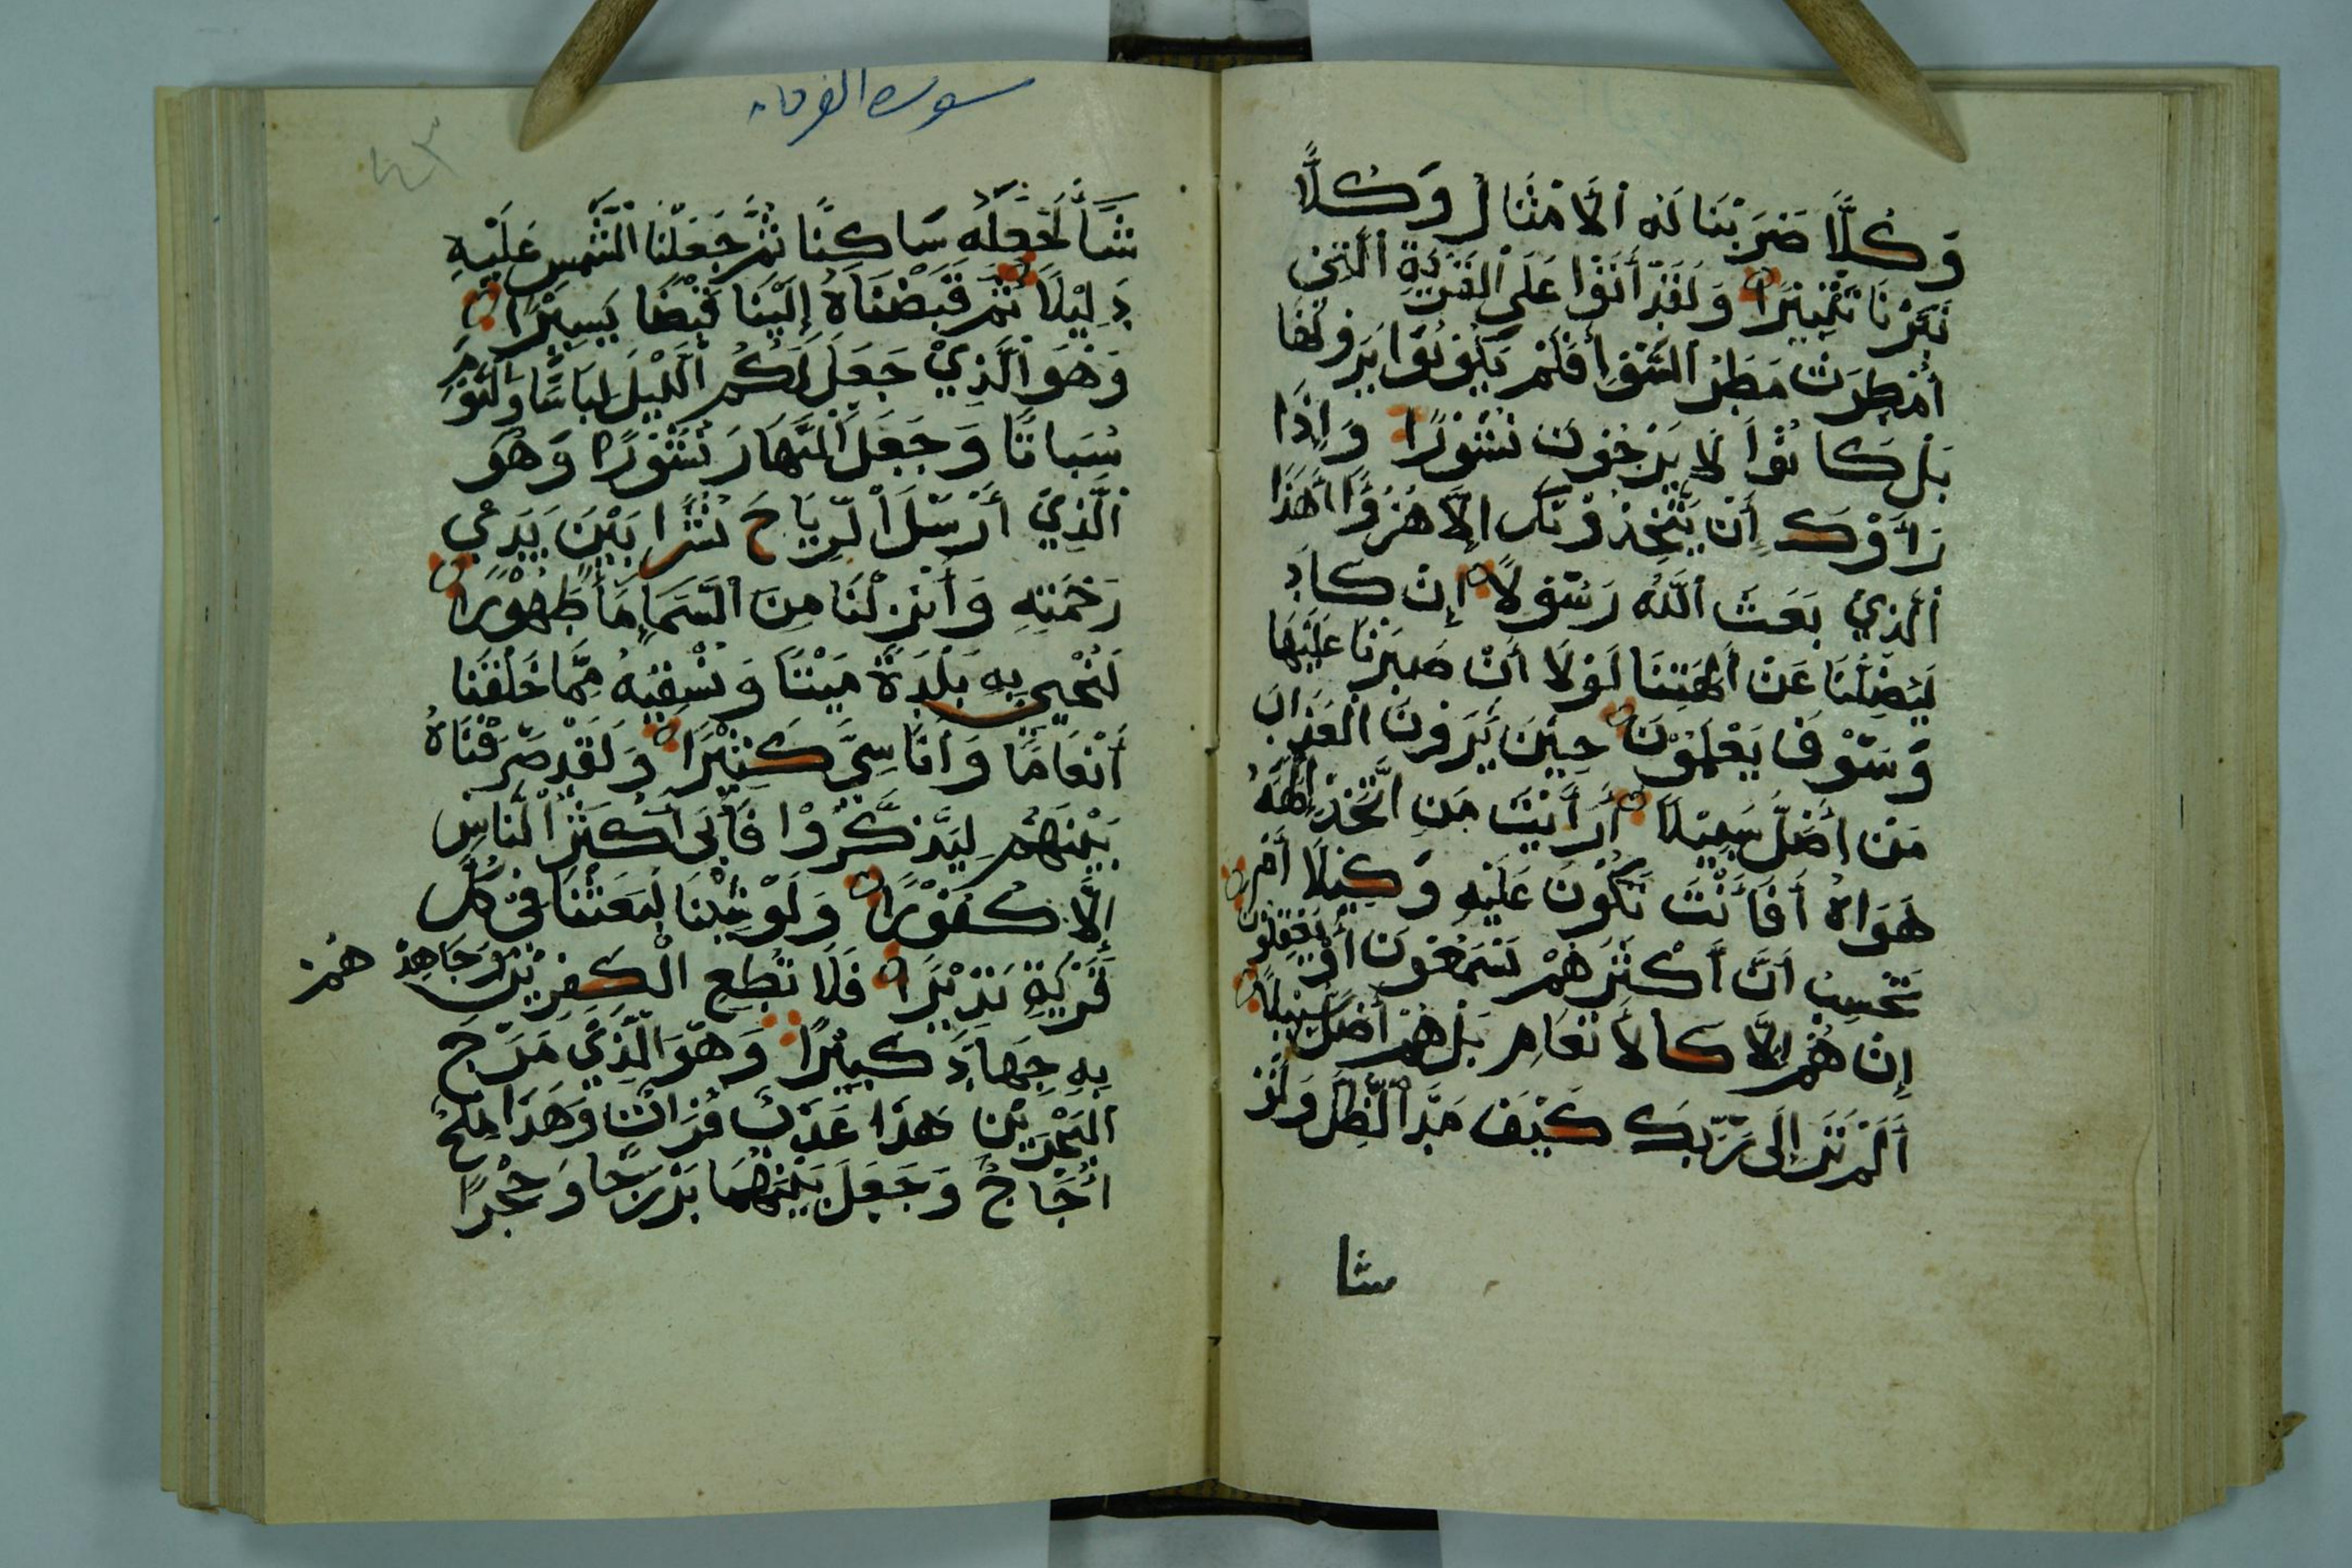 وَكُلًّا ضَرَبْنَا لَهُ اَلْاَمْثَالَ وَكُلًّا
تَبَّرْنَا تَتْبِيْرًا وَلَقَدْ أَتَوْا عَلَى الْقَرْيَةِ الَّتِيْ
أُمْطِرَتْ مَطَرَ السَّوْءِ أَفَلَمْ يَكُوْنُوْا يَرَوْنَهَا
بَلْ كَانُوْا لَا يَرْجُوْنَ نُشُوْرًا وَإِذَا
رَأَوْكَ إِنْ يَتَّخِذُوْنَكَ إِلَّا هُزُوًا أَهَذَا
اَلَّذِيْ بَعَثَ اَللَّهُ رَسُوْلًا إِنْ كَادَ
لَيُضِلُّنَا عَنْ اٰلِهَتِنَا لَوْلَا أَنْ صَبَرْنَا عَلَيْهَا
وَسَوْفَ يَعْلَمُوْنَ حِيْنَ يَرَوْنَ الْعَذَابَ
مَنْ أَضَلُّ سَبِيْلًا أَرَأَيْتَ مَنِ اتَّخَذَ إِلَهَهُ
هَوَاهُ أَفَأَنْتَ تَكُوْنُ عَلَيْهِ وَكِيْلًا أَمْ
تَحْسِبُ أَنَّ أَكْثَرَهُمْ يَسْمَعُوْنَ أَوْ يَعْقِلُوْنَ
إِنْ هُمْ إِلَّا كَالْاَنْعَامِ بَلْ هُمْ أَضَلُّ سَبِيْلًا
أَلَمْ تَرَ إِلَى رَبِّكَ كَيْفَ مَدَّ الظِّلَّ وَلَوْ
شا
سورة الفرقان
شَاْ لَجَعَلَهُ سَاكِنًا ثُمَّ جَعَلْنَا الشَّمْسَ عَلَيْهِ
دَلِيْلًا ثُمَّ قَبَضْنَاهُ إِلَيْنَا قَبْضًا يَسِيْرًا
وَهُوَ الَّذِيْ جَعَلَ لَكُمُ الَّلْيْلَ لِبَاسًا وَالنَّوْمَ
سُبَاتًا وَجَعَلَ النَّهَارَ نُشُوْرًا وَهُوَ
اَلَّذِيْ أَرْسَلَ الرِّيَاحَ نُشْرًا بَيْنَ يَدَيْ
رَحْمَتِهِ وَأَنْزَلْنَا مِنَ السَّمَاءِ مَاً طَهُوْرًا
لِنُحْيِيَ بِهِ بَلْدَةً مَيْتًا وَنُسْقِيَهُ مِمَّا خَلَقْنَا
أَنْعَامًا وَأَنَاسِيَّ كَثِيْرًا وَلَقَدْ صَرَّفْنَاهُ
بَيْنَهُمْ لِيَذَّكَّرُوْا فَأَبَى أَكْثَرُ النَّاسِ
إِلَّا كُفُوْرًا وَلَوْ شِئْنَا لَبَعَثْنَا فِيْ كُلِّ
قَرْيَةٍ نَذِيْرًا فَلَا تُطِعِ الْكَفِرِيْنَ وَجَاهِدْ هُمْ
بِهِ جِهَادً كَبِيْرًا وَهُوَ الَّذِيْ مَرَجَ
الْبَحْرَيْنِ هَذَا عَذْبٌ فُرَاتٌ وَهَذَا مِلْحٌ
اُجَاجٌ وَجَعَلَ بَيْنَهُمَا بَرْزَخًا وَحِجْرًا